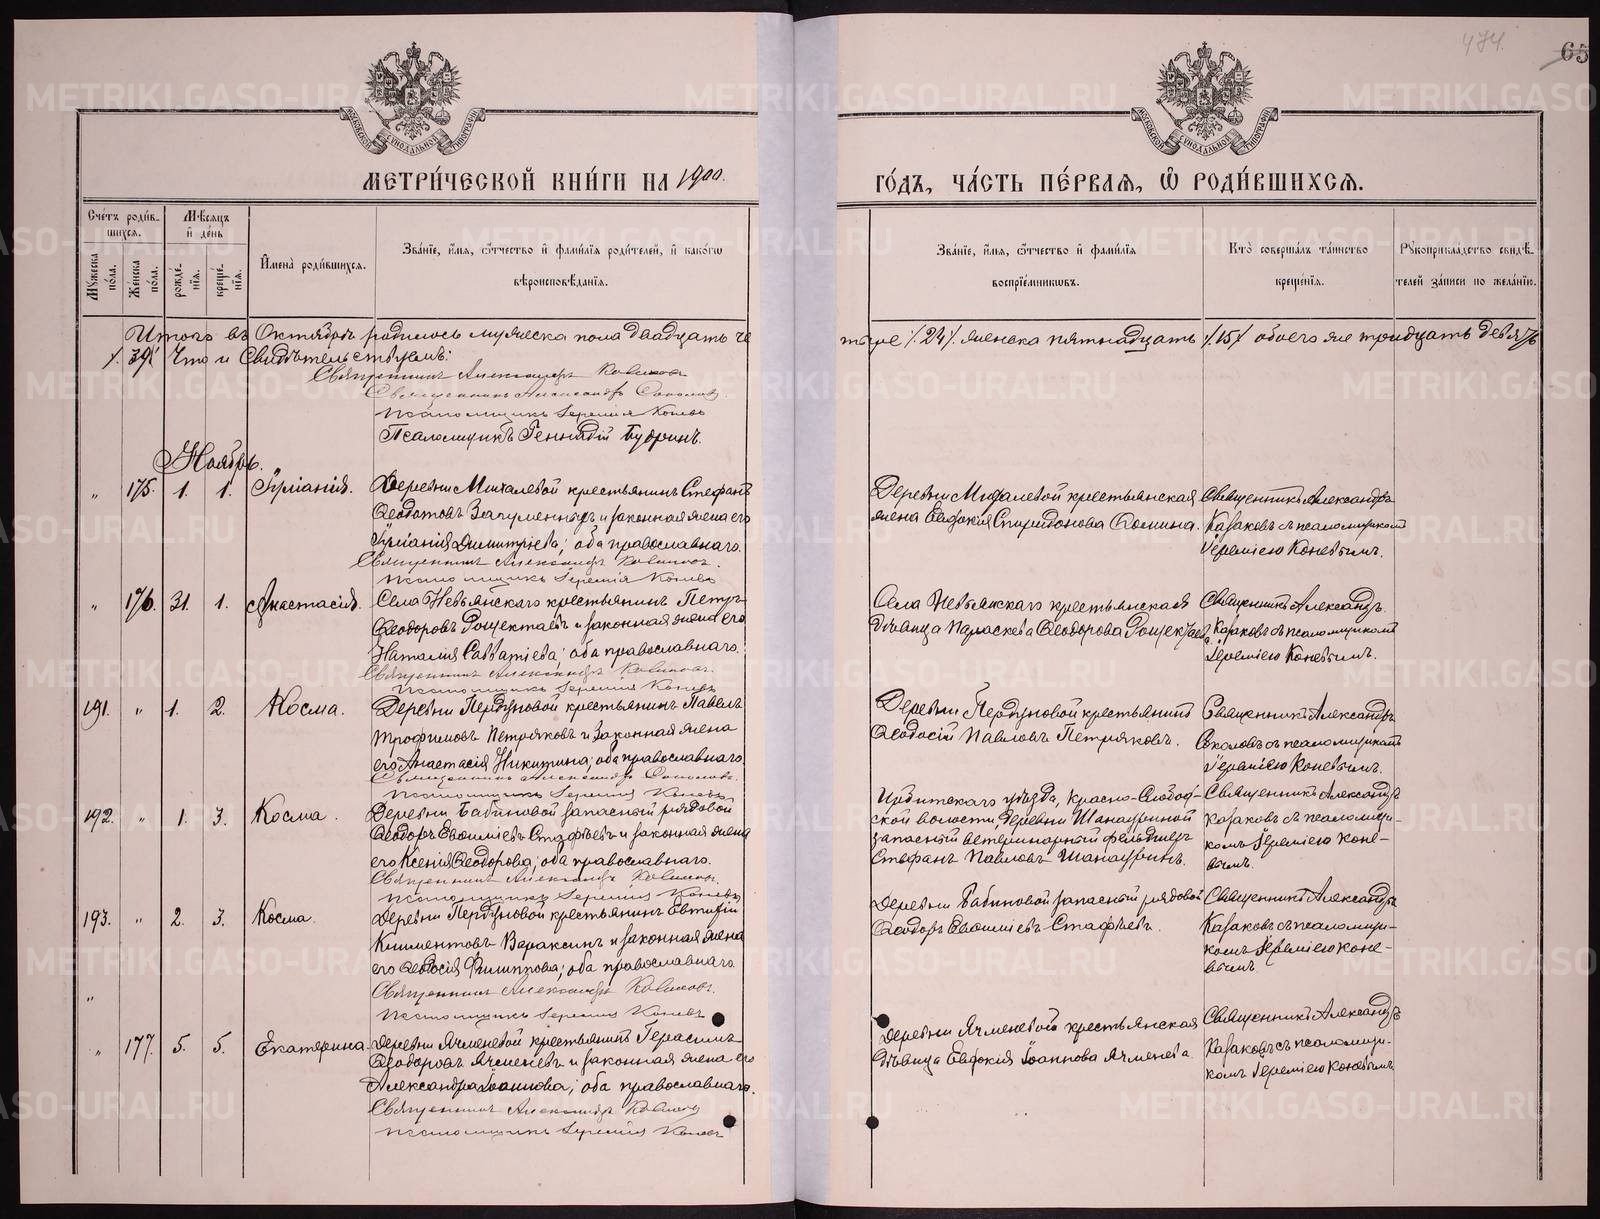 474.
65
МЕТРИ́ЧЕСКОЙ КНИ́ГИ НА 1900.
ГО́ДЪ, ЧА́СТЬ ПЕ́РВАѦ, Ѡ҆ РОДИ́ВШИХСѦ.
Сче́тъ роди́в-
шихсѧ.
Мѣ́сѧцъ
и҆ де́нь
Мꙋ́жеска
по́ла.
Же́нска
по́ла.
рожде́-
нїѧ.
креще́-
нїѧ.
И҆мена̀ роди́вшихсѧ.
Зва́нїе, и҆́мѧ, ѻ҆́тчество и҆ фами́лїѧ роди́телей, и҆ како́гѡ
вѣроисповѣ́данїѧ.
Зва́нїе, и҆́мѧ, ѻ҆́тчество и҆ фами́лїѧ
воспрїе́мникѡвъ.
Кто̀ соверша́лъ та́инство
креще́нїѧ.
Рꙋкоприкла́дство свидѣ́-
телей за́писи по жела́нїю.
Итого въ Октябрѣ родилось мужеска пола двадцать че
тыре /24/ женска пятнадцать /15/ обоего же тридцать девять
/39/ Что и Свидѣтельствуемъ:
Священникъ Александръ Казаковъ
Священникъ Александръ Соколовъ.
Псаломщикъ Іеремія Коневъ
Псаломщикъ Геннадій Будринъ.
Ноябрь.
" 175. 1. 1. Іуліанія.
Деревни Михалевой крестьянинъ Стефанъ
Ѳеодотовъ и законная жена его
Іуліанія Димитріева; оба православнаго.
Священникъ Александръ Казаковъ.
Псаломщикъ Іеремія Коневъ
Деревни Михалевой крестьянская
жена Евдокія Спиридонова Ѳомина.
Священникъ Александръ
Казаковъ съ псаломщикомъ
Іереміею Коневымъ.
" 176. 31. 1. Анастасія.
Села Невьянскаго крестьянинъ Петръ
Ѳеодоровъ Рощектаевъ и законная жена его
Наталія Савватіева; оба православнаго.
Священникъ Александръ Казаковъ.
Псаломщикъ Іеремія Коневъ
Села Невьянскаго крестьянская
дѣвица Параскева Ѳеодорова Рощектаева
Священникъ Александръ
Казаковъ съ псаломщикомъ
Іереміею Коневымъ.
191. " 1. 2. Косма.
Деревни Пердуновой крестьянинъ Павелъ
Трофимовъ Петряковъ и законная жена
его Анастасія Никитина; оба православнаго
Священникъ Александръ Соколовъ.
Псаломщикъ Іеремія Коневъ
Деревни Пердуновой крестьянинъ
Ѳеодосій Павловъ Петряковъ.
Священникъ Александръ
Соколовъ съ псаломщикомъ
Іереміею Коневымъ.
192. " 1. 3. Косма.
Деревни Бабиновой запасный рядовой
Ѳеодоръ Евѳиміевъ Стафѣевъ и законная жена
его Ксенія Ѳеодорова; оба православнаго.
Священникъ Александръ Казаковъ.
Псаломщикъ Іеремія Коневъ
Ирбитскаго уѣзда, Красно-Слобод-
ской волости деревни Шанауриной
запасный ветеринарный фельдшеръ
Стефанъ Павловъ Шанауринъ.
Священникъ Александръ
Казаковъ съ псаломщи-
комъ Іереміею Коне-
вымъ.
193. " 2. 3. Косма.
Деревни Пердуновой крестьянинъ Евтихій
Климентовъ Вараксинъ и законная жена
его Ѳеодосія Филиппова; оба православнаго.
Священникъ Александръ Казаковъ.
Псаломщикъ Іеремія Коневъ
Деревни Бабиновой запасный рядовой
Ѳеодоръ Евѳиміевъ Стафѣевъ.
Священникъ Александръ
Казаковъ съ псаломщи-
комъ Іереміею Коне-
вымъ
"
" 177. 5. 5. Екатерина.
Деревни Ячменевой крестьянинъ Герасимъ
Ѳеодоровъ Ячменевъ и законная жена его
Александра Іоаннова; оба православнаго.
Священникъ Александръ Казаковъ
Псаломщикъ Іеремія Коневъ
Деревни Ячменевой крестьянская
дѣвица Евдокія Іоаннова Ячменева.
Священникъ Александръ
Казаковъ съ псаломщи-
комъ Іереміею Коневымъ
METRIKI.GASO-URAL.RU